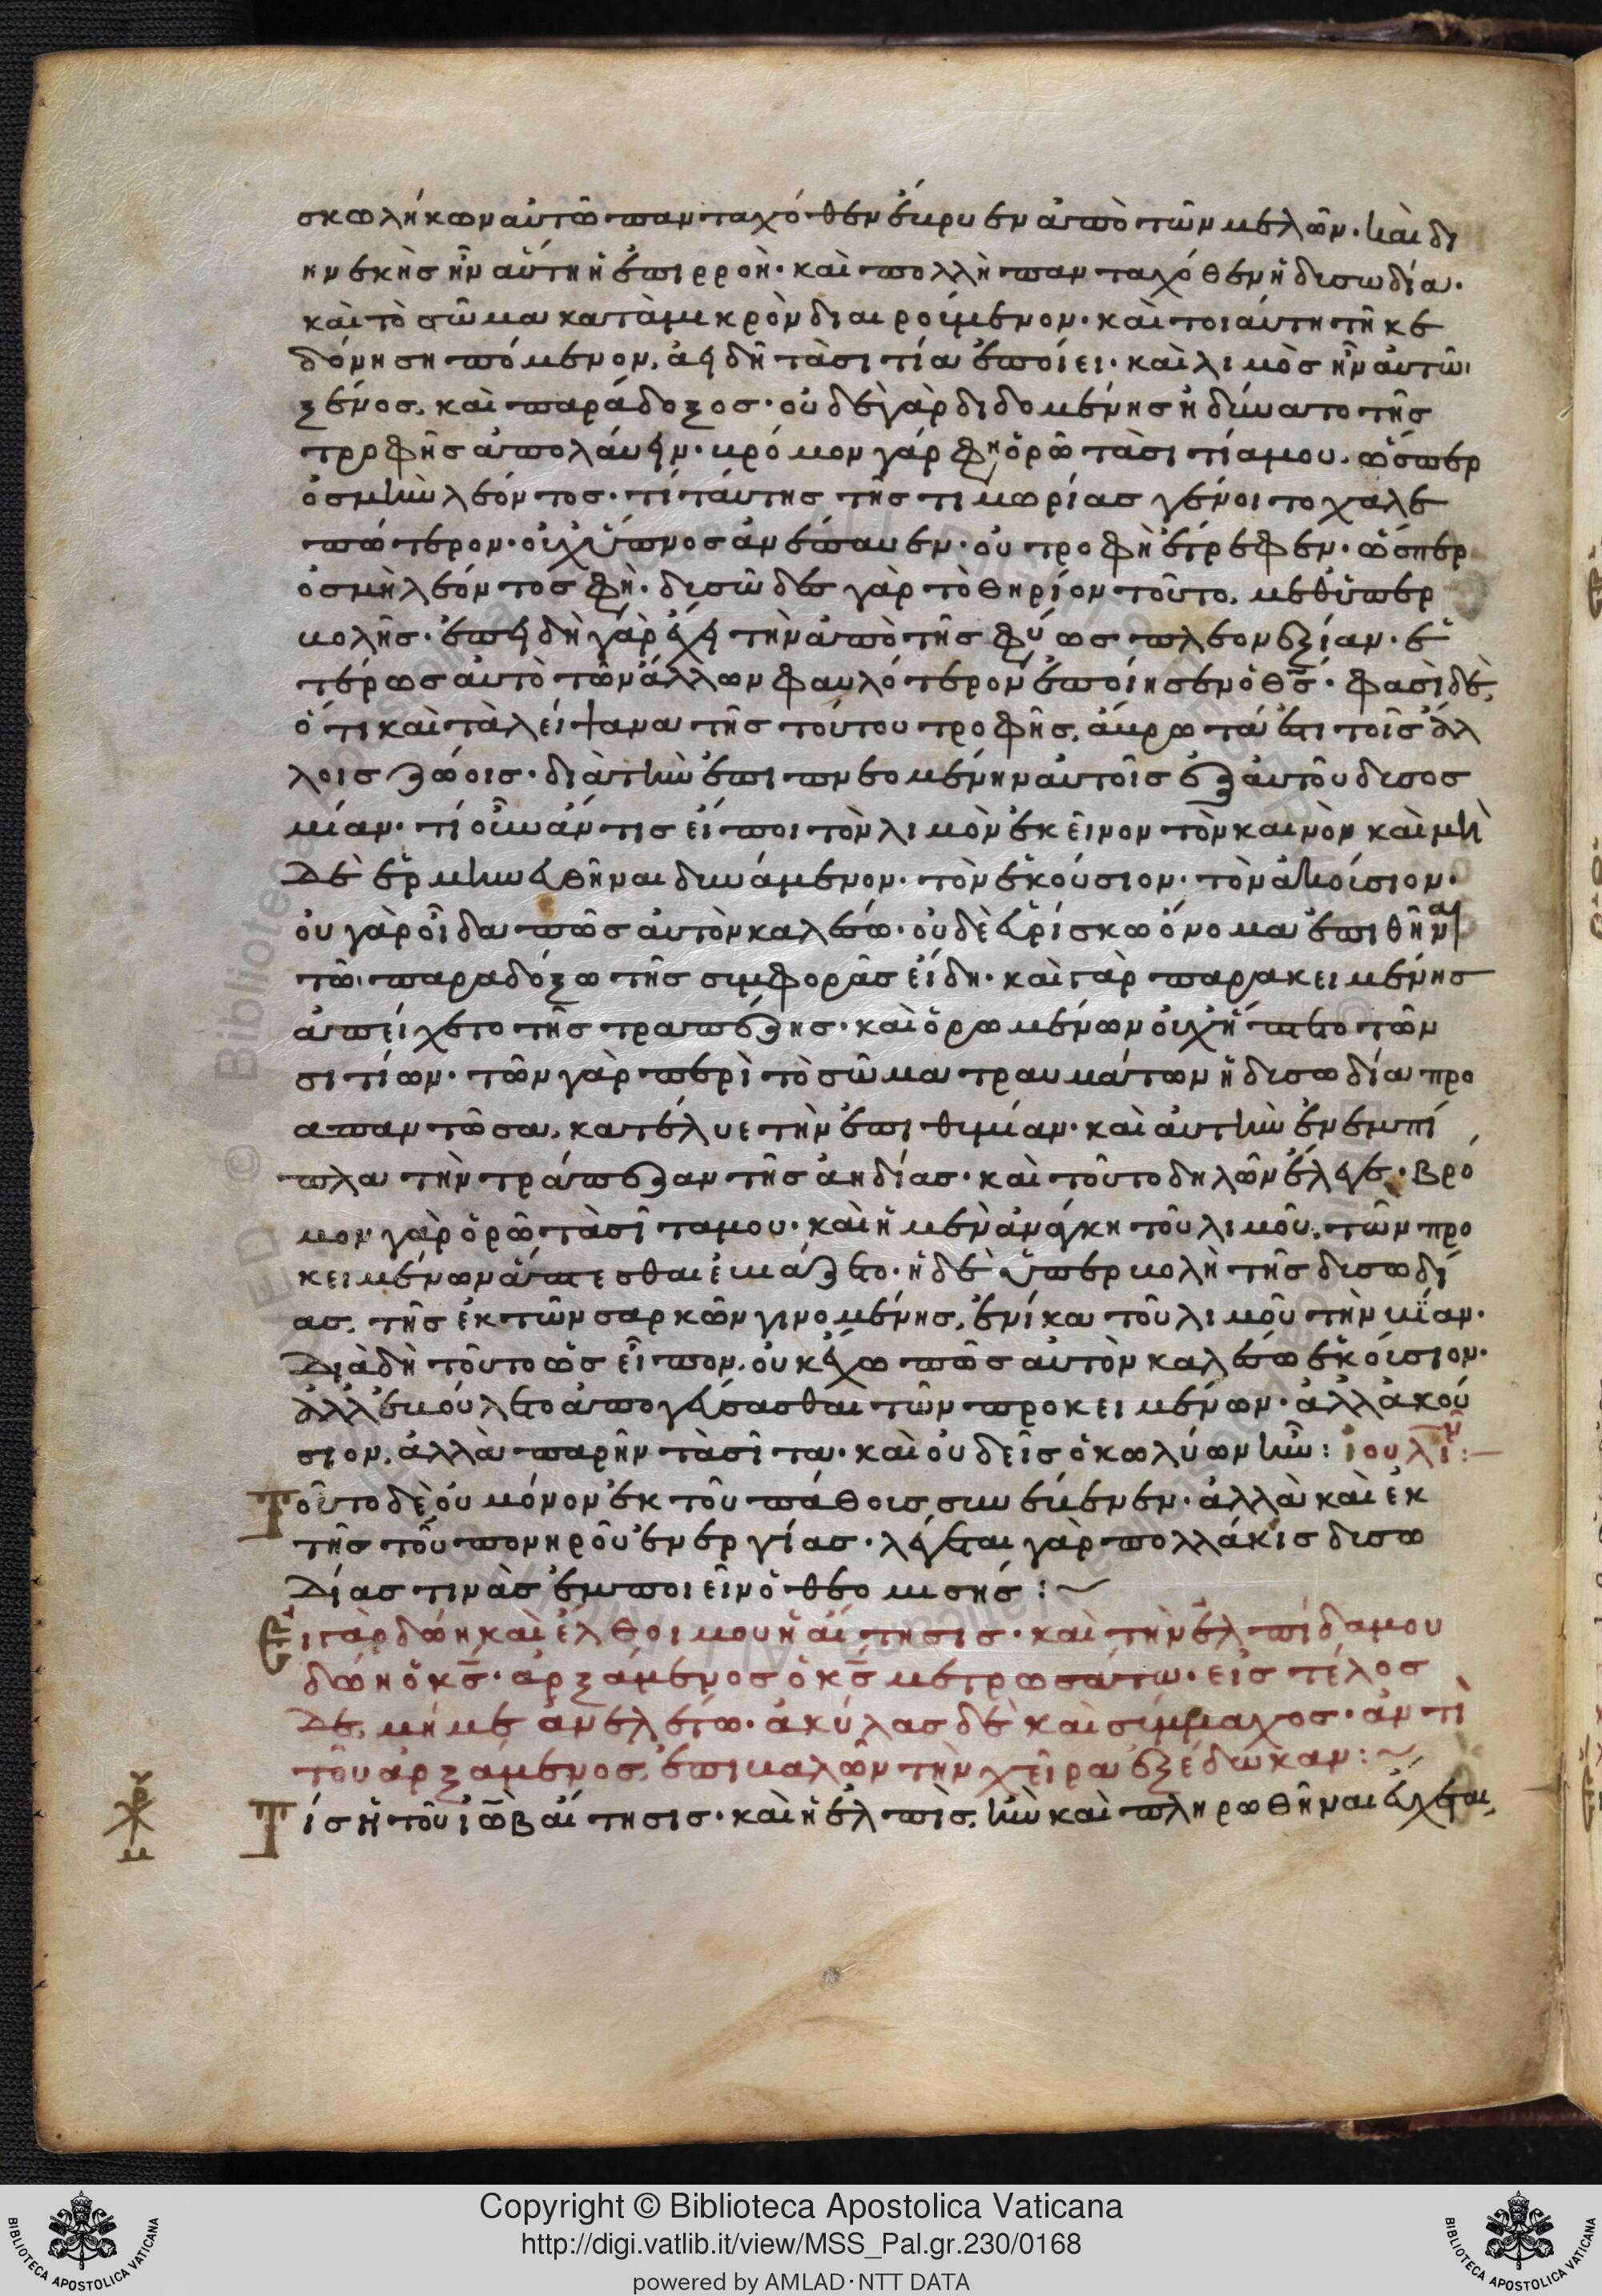 σκωλήκων αὐτῶ πανταχόθεν ἔβρυεν ἀπὸ τῶν μελῶν· καὶ δι
ηνεκὴς ἦν αὕτη ἡ ἐπιρροὴ· καὶ πολλὴ πανταχόθεν ἡ δυσωδία·
καὶ τὸ σῶμα κατὰ μικρὸν διαιρούμενον· καὶ τοιαύτη τῆ κε
δόνι σηπόμενον, ἀηδῆ τὰ σιτία ἐποίει· καὶ λιμὸς ἦν αὐτῶ
ξένος, καὶ παράδοξος· οὐδὲ γὰρ διδομένης ἠδύνατο τῆς
τροφῆς ἀπολάυειν· βρόμον γάρ φη ὁρῶ τὰ σιτία μου, ὥσπερ
ὀσμὴν λέοντος· τί ταύτης τῆς τιμωρίας γένοιτο χαλε
πώτερον· οὐχ ὕπνος ἀνέπαυεν· οὐ τροφὴ ἔτρεφεν· ὥσπερ
ὀσμὴ λέοντος φὴ· δυσῶδες γὰρ τὸ θηρίον τοῦτο, μεθ' ὑπερ
βολῆς· ἐπειδὴ γὰρ ἔχει τὴν ἀπὸ τῆς φύσεως πλεονεξίαν· ἑ
τέρως αὐτὸ τῶν ἄλλων φαυλότερον ἐποίησεν ὁ θς· φασὶ δὲ,
ὅτι καὶ τὰ λείψανα τῆς τούτου τροφῆς, ἄβρωτά ἐστι τοῖς ἄλ
λοις ζώοις· διὰ τὴν ἐπιπνεομένην αὐτοῖς ἐξ αὐτοῦ δυσοσ
μίαν· τί οὖν ἄν τις εἴποι τὸν λιμὸν ἐκεῖνον τὸν καινὸν καὶ μὴ
δὲ ἑρμηνευθῆναι δυνάμενον· τὸν ἑκούσιον· τὸν ἀκούσιον·
οὐ γὰρ οἶδα πῶς αὐτὸν καλέσω· οὐδὲ εὑρίσκω ὄνομα ἐπιθῆναι
τῶ παραδόξω τῆς συμφορᾶς εἴδη· καὶ γὰρ παρακειμένης
ἀπείχετο τῆς τραπέζης· καὶ ὁρωμένων οὐχ ἥπτετο τῶν
σιτίων· τῶν γὰρ περὶ τὸ σῶμα τραυμάτων ἡ δυσωδία προ
απαντῶσα, κατέλυε τὴν ἐπιθυμίαν· καὶ αὐτὴν ἐνεμπί
πλα τὴν τράπεζαν τῆς ἀηδίας· καὶ τοῦτο δηλῶν ἔλεγε· βρό
μον γὰρ ὁρῶ τὰ σῖτα μου· καὶ ἡ μὲν ἀνάγκη τοῦ λιμοῦ, τῶν προ
κειμένων ἅπτεσθαι ἐβιάζετο· ἡ δὲ ὑπερβολὴ τῆς δυσωδί
ας, τῆς ἐκ τῶν σαρκῶν γινομένης, ἐνίκα τοῦ λιμοῦ τὴν βίαν·
Διὰ δὴ τοῦτο ὡς εἶπον, οὐκ ἔχω πῶς αὐτὸν καλέσω ἑκούσιον·
ἀλλ' ἐβούλετο ἀπογεύσασθαι τῶν προκειμένων· ἀλλ' ἀκού
σιον, ἀλλὰ παρῆν τὰ σῖτα· καὶ οὐδεὶς ὁ κωλύων ἦν: ιουλιν:—
Τοῦτο δὲ οὐ μόνον ἐκ τοῦ πάθους συνέβαινεν· ἀλλὰ καὶ ἐκ
τῆς τοῦ πονηροῦ ἐνεργίας· λέγεται γὰρ πολλάκις δυσω
Δίας τινὰς ἐμποιεῖν ὁ θεομισής :~
Εἰ γὰρ δώη καὶ ἔλθοι μου ἡ αἴτησις· καὶ τὴν ἐλπίδα μου
δώη ὁ κς· ἀρξάμενος ὁ κς με τρωσάτω· εἰς τέλος
Δὲ, μή με ἀνελέτω· ἀκύλας δὲ καὶ σύμμαχος· ἀντὶ
τοῦ ἀρξάμενος, ἐπιβαλῶν τὴν χεῖρα ἐξέδωκαν:~
Τίς ἡ τοῦ ἰῶβ αἴτησις· καὶ ἡ ἐλπὶς, ἣν καὶ πληρωθῆναι εὔχεται,
Copyright © Biblioteca Apostolica Vaticana
http://digi.vatlib.it/view/MSS_Pal.gr.230/0168
powered by AMLAD·NTT DATA
BIBLIOTECA APOSTOLICA VATICANA
BIBLIOTECA APOSTOLICA VATICANA